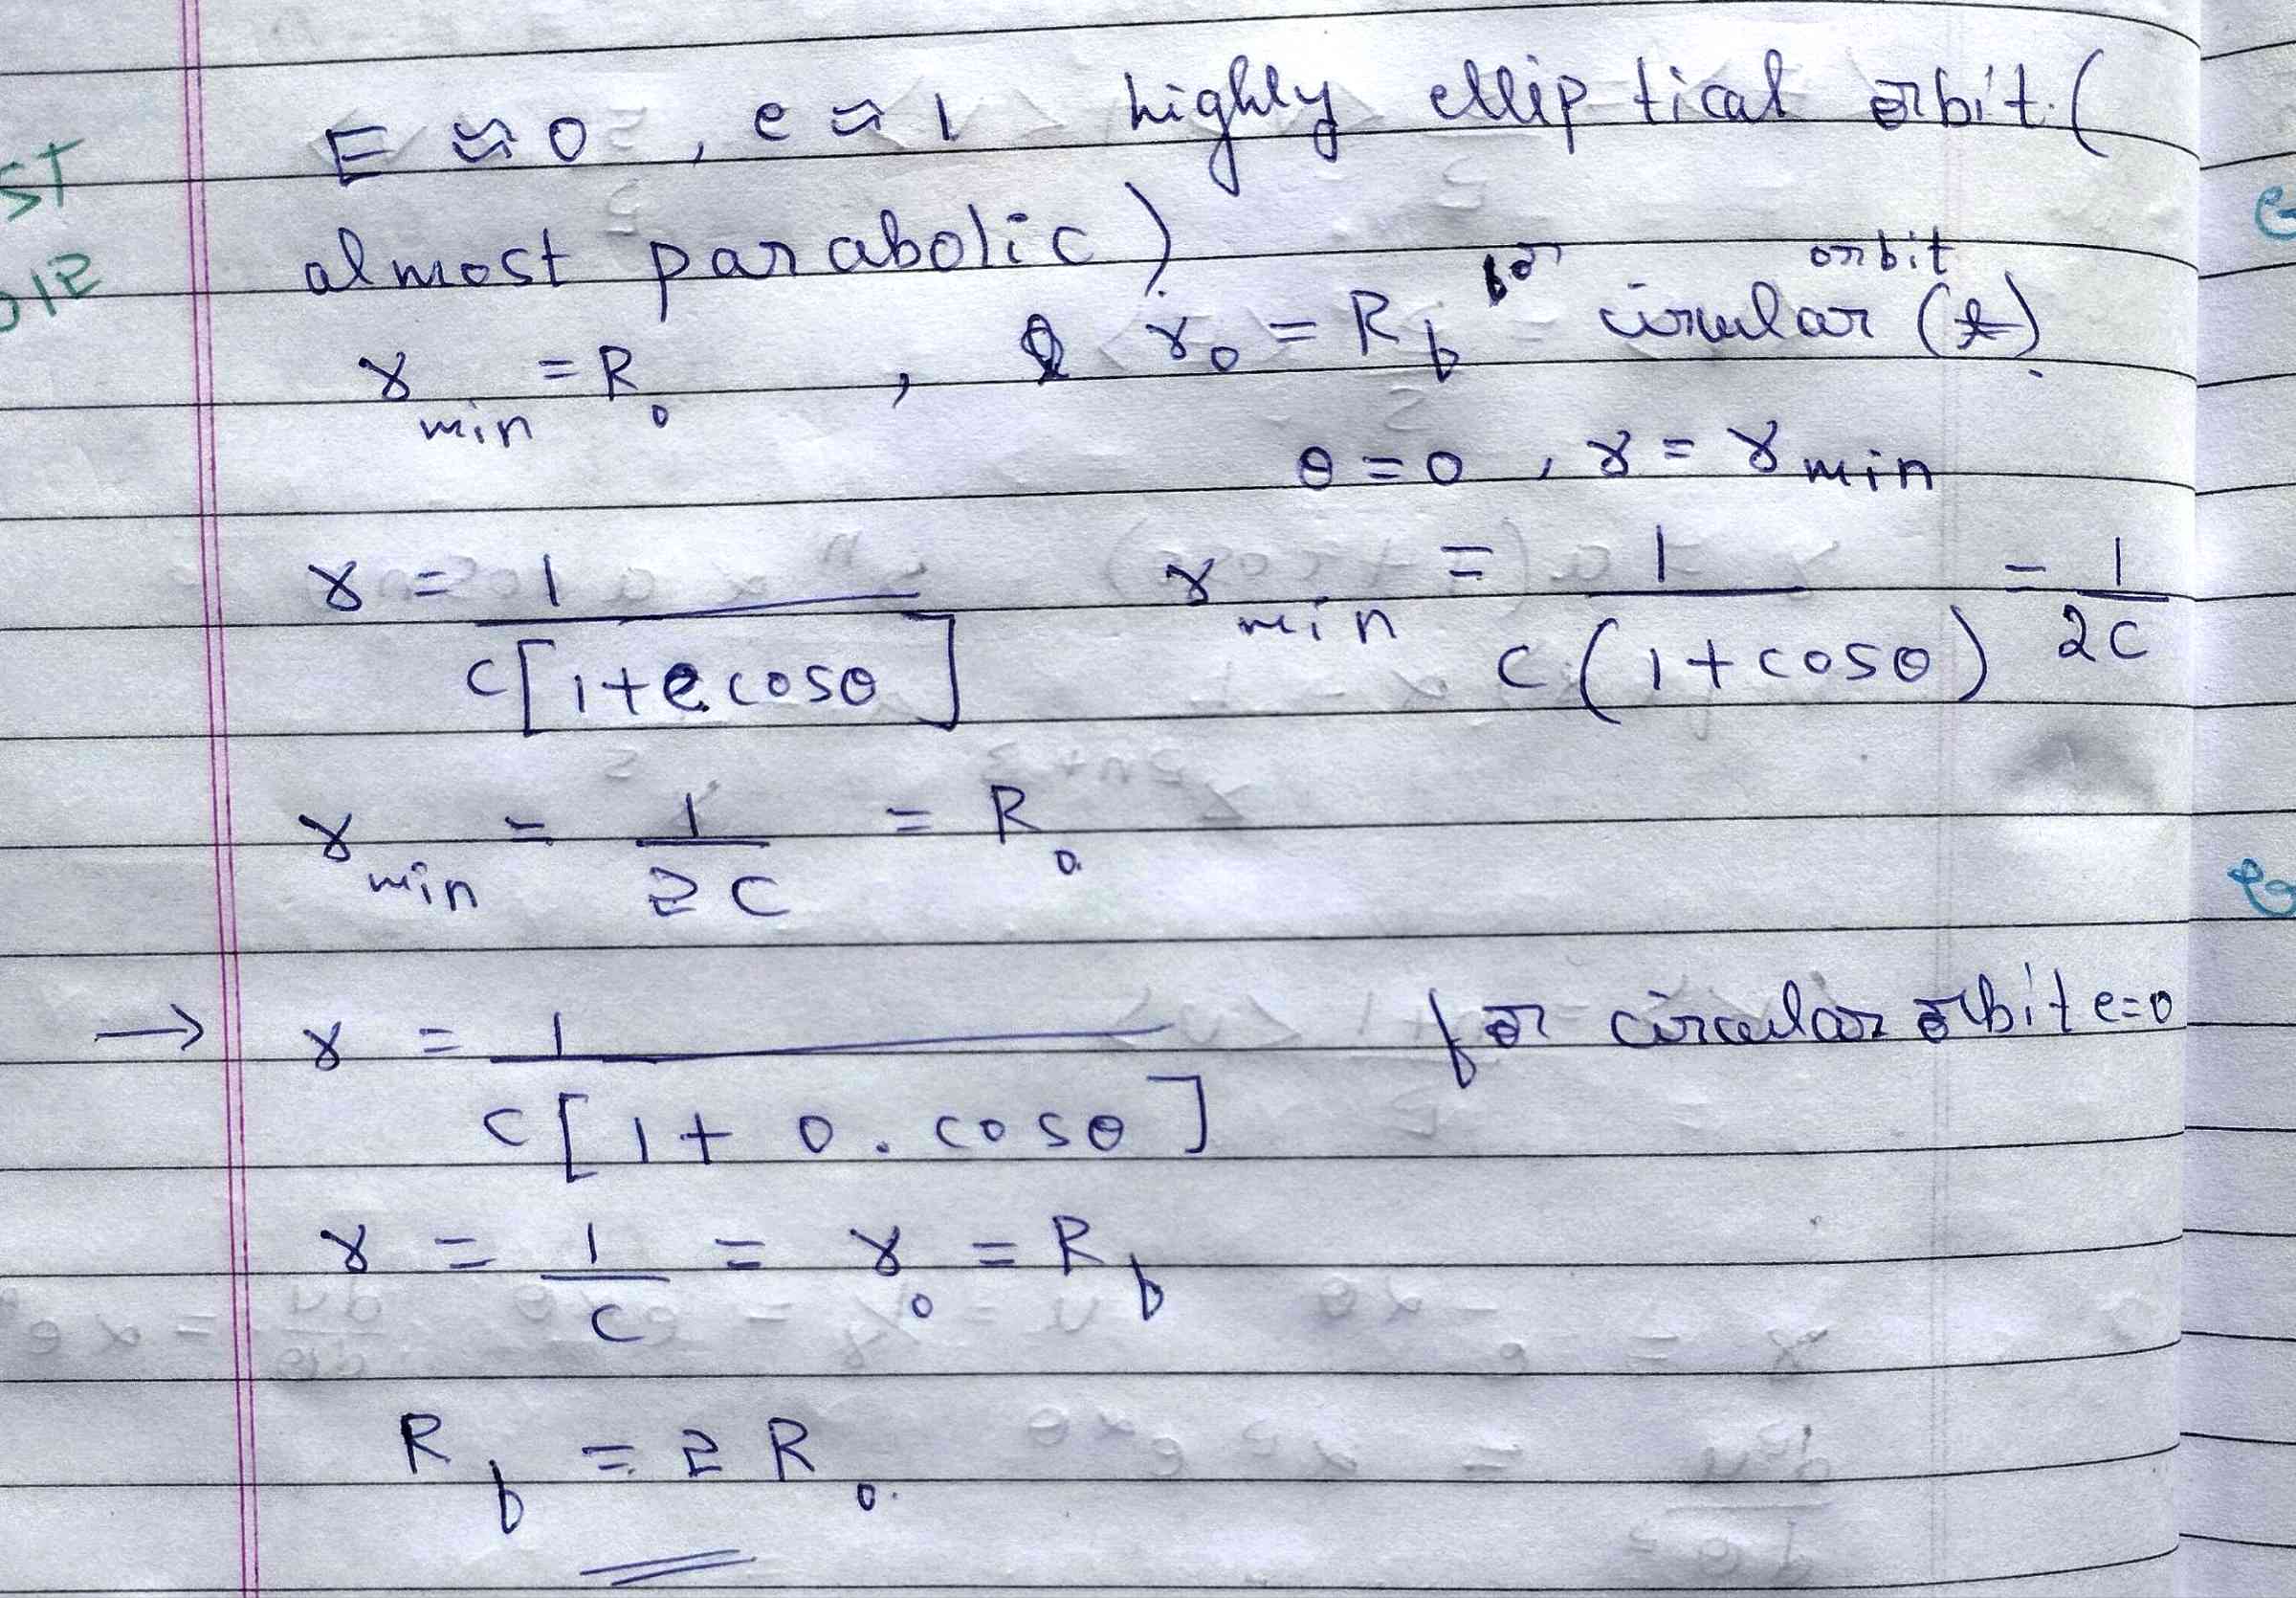 E ≈ 0 , e ≈ 1 highly elliptical orbit. (
ST
almost parabolic)
012
r_min = R_0 , & r_0 = R_f for circular orbit
θ = 0 , r = r_min
r = 1 / c[1+e cosθ] r_min = 1 / c(1+cosθ) = 1/2c
r_min = 1/2c = R_0
→ r = 1 / c[1+ 0 . cosθ] for circular orbit e=0
r = 1/c = r_0 = R_f
R_f = 2 R_0.